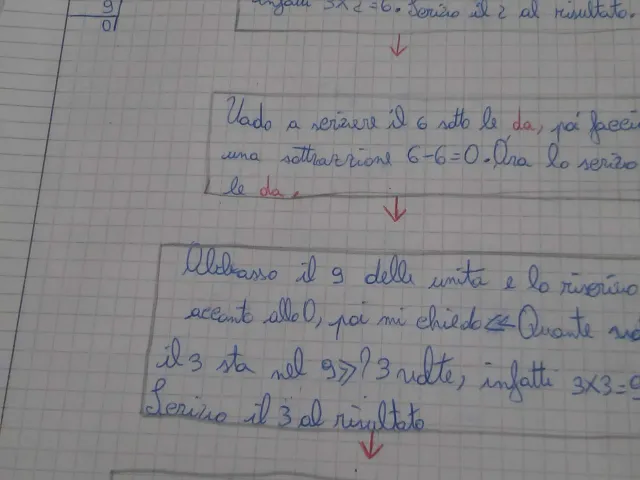 9
0
infatti 3x2=6. Scrivo il 2 al risultato.
Vado a scrivere il 6 sotto le da, poi facci
una sottrazione 6-6=0. Ora lo scrivo
le da.
Abbasso il 9 delle unità e lo riscrivo
accanto allo 0, poi mi chiedo «Quante vo
il 3 sta nel 9»? 3 volte, infatti 3x3=9
Scrivo il 3 al risultato